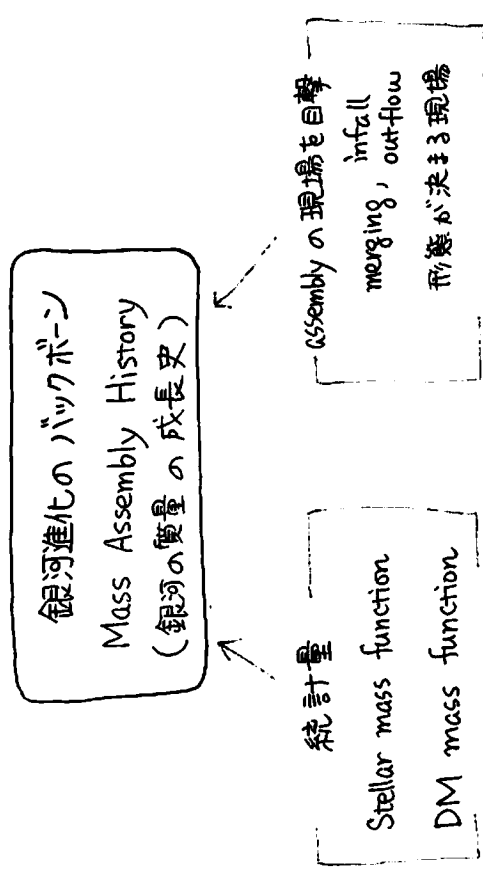 銀河進化のバックボーン
Mass Assembly History
(銀河の質量の成長史)
統計量
Stellar mass function
DM mass function
assemblyの現場を目撃
infall
merging, outflow
形態が決まる現場